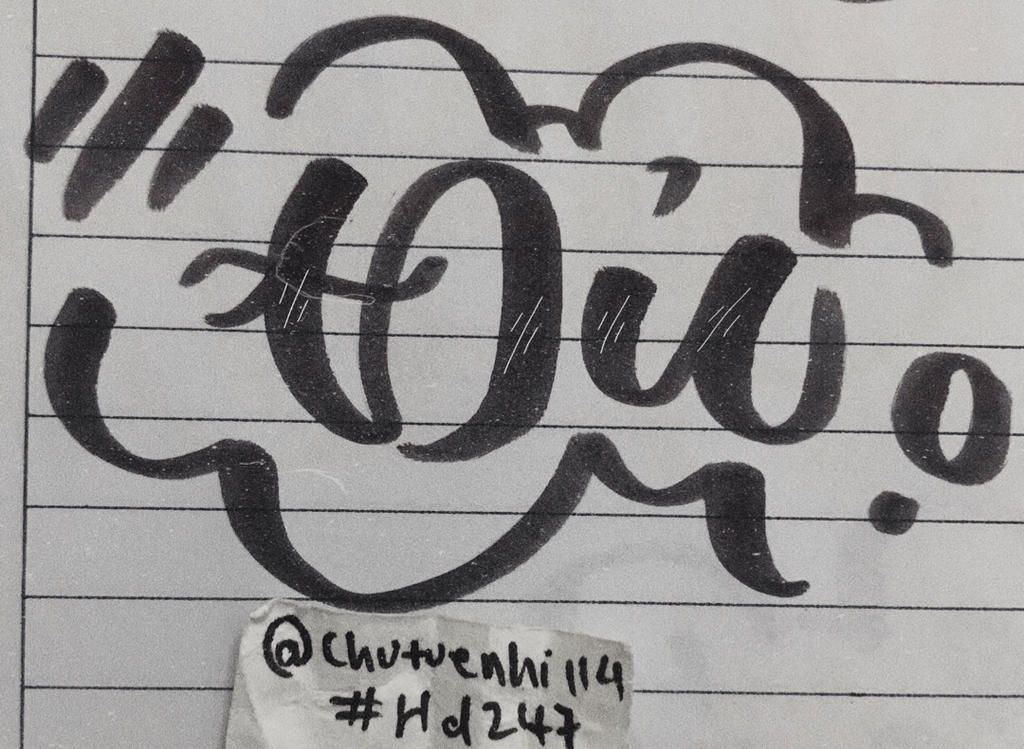 Đủ
@chutuenhi114
#Hd247